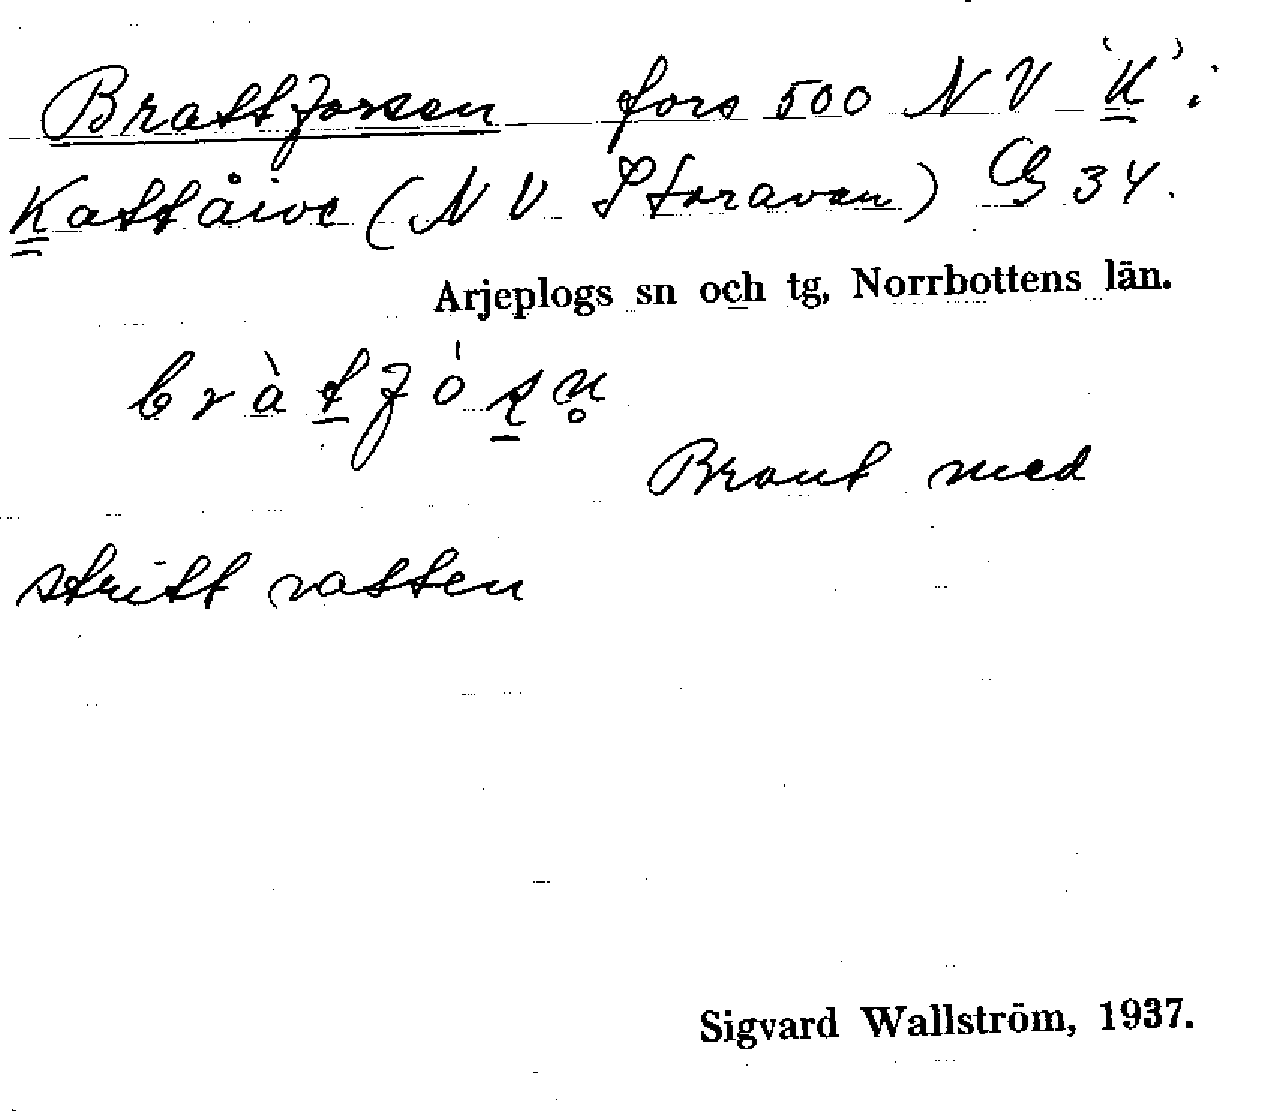 Brattforsen fors 500 NV 'K' i
Kattåive (NV Storavan) G 34.
Arjeplogs sn och tg, Norrbottens län.
bràtfóʂn̥
Brant med
stritt vatten
Sigvard Wallström, 1937.